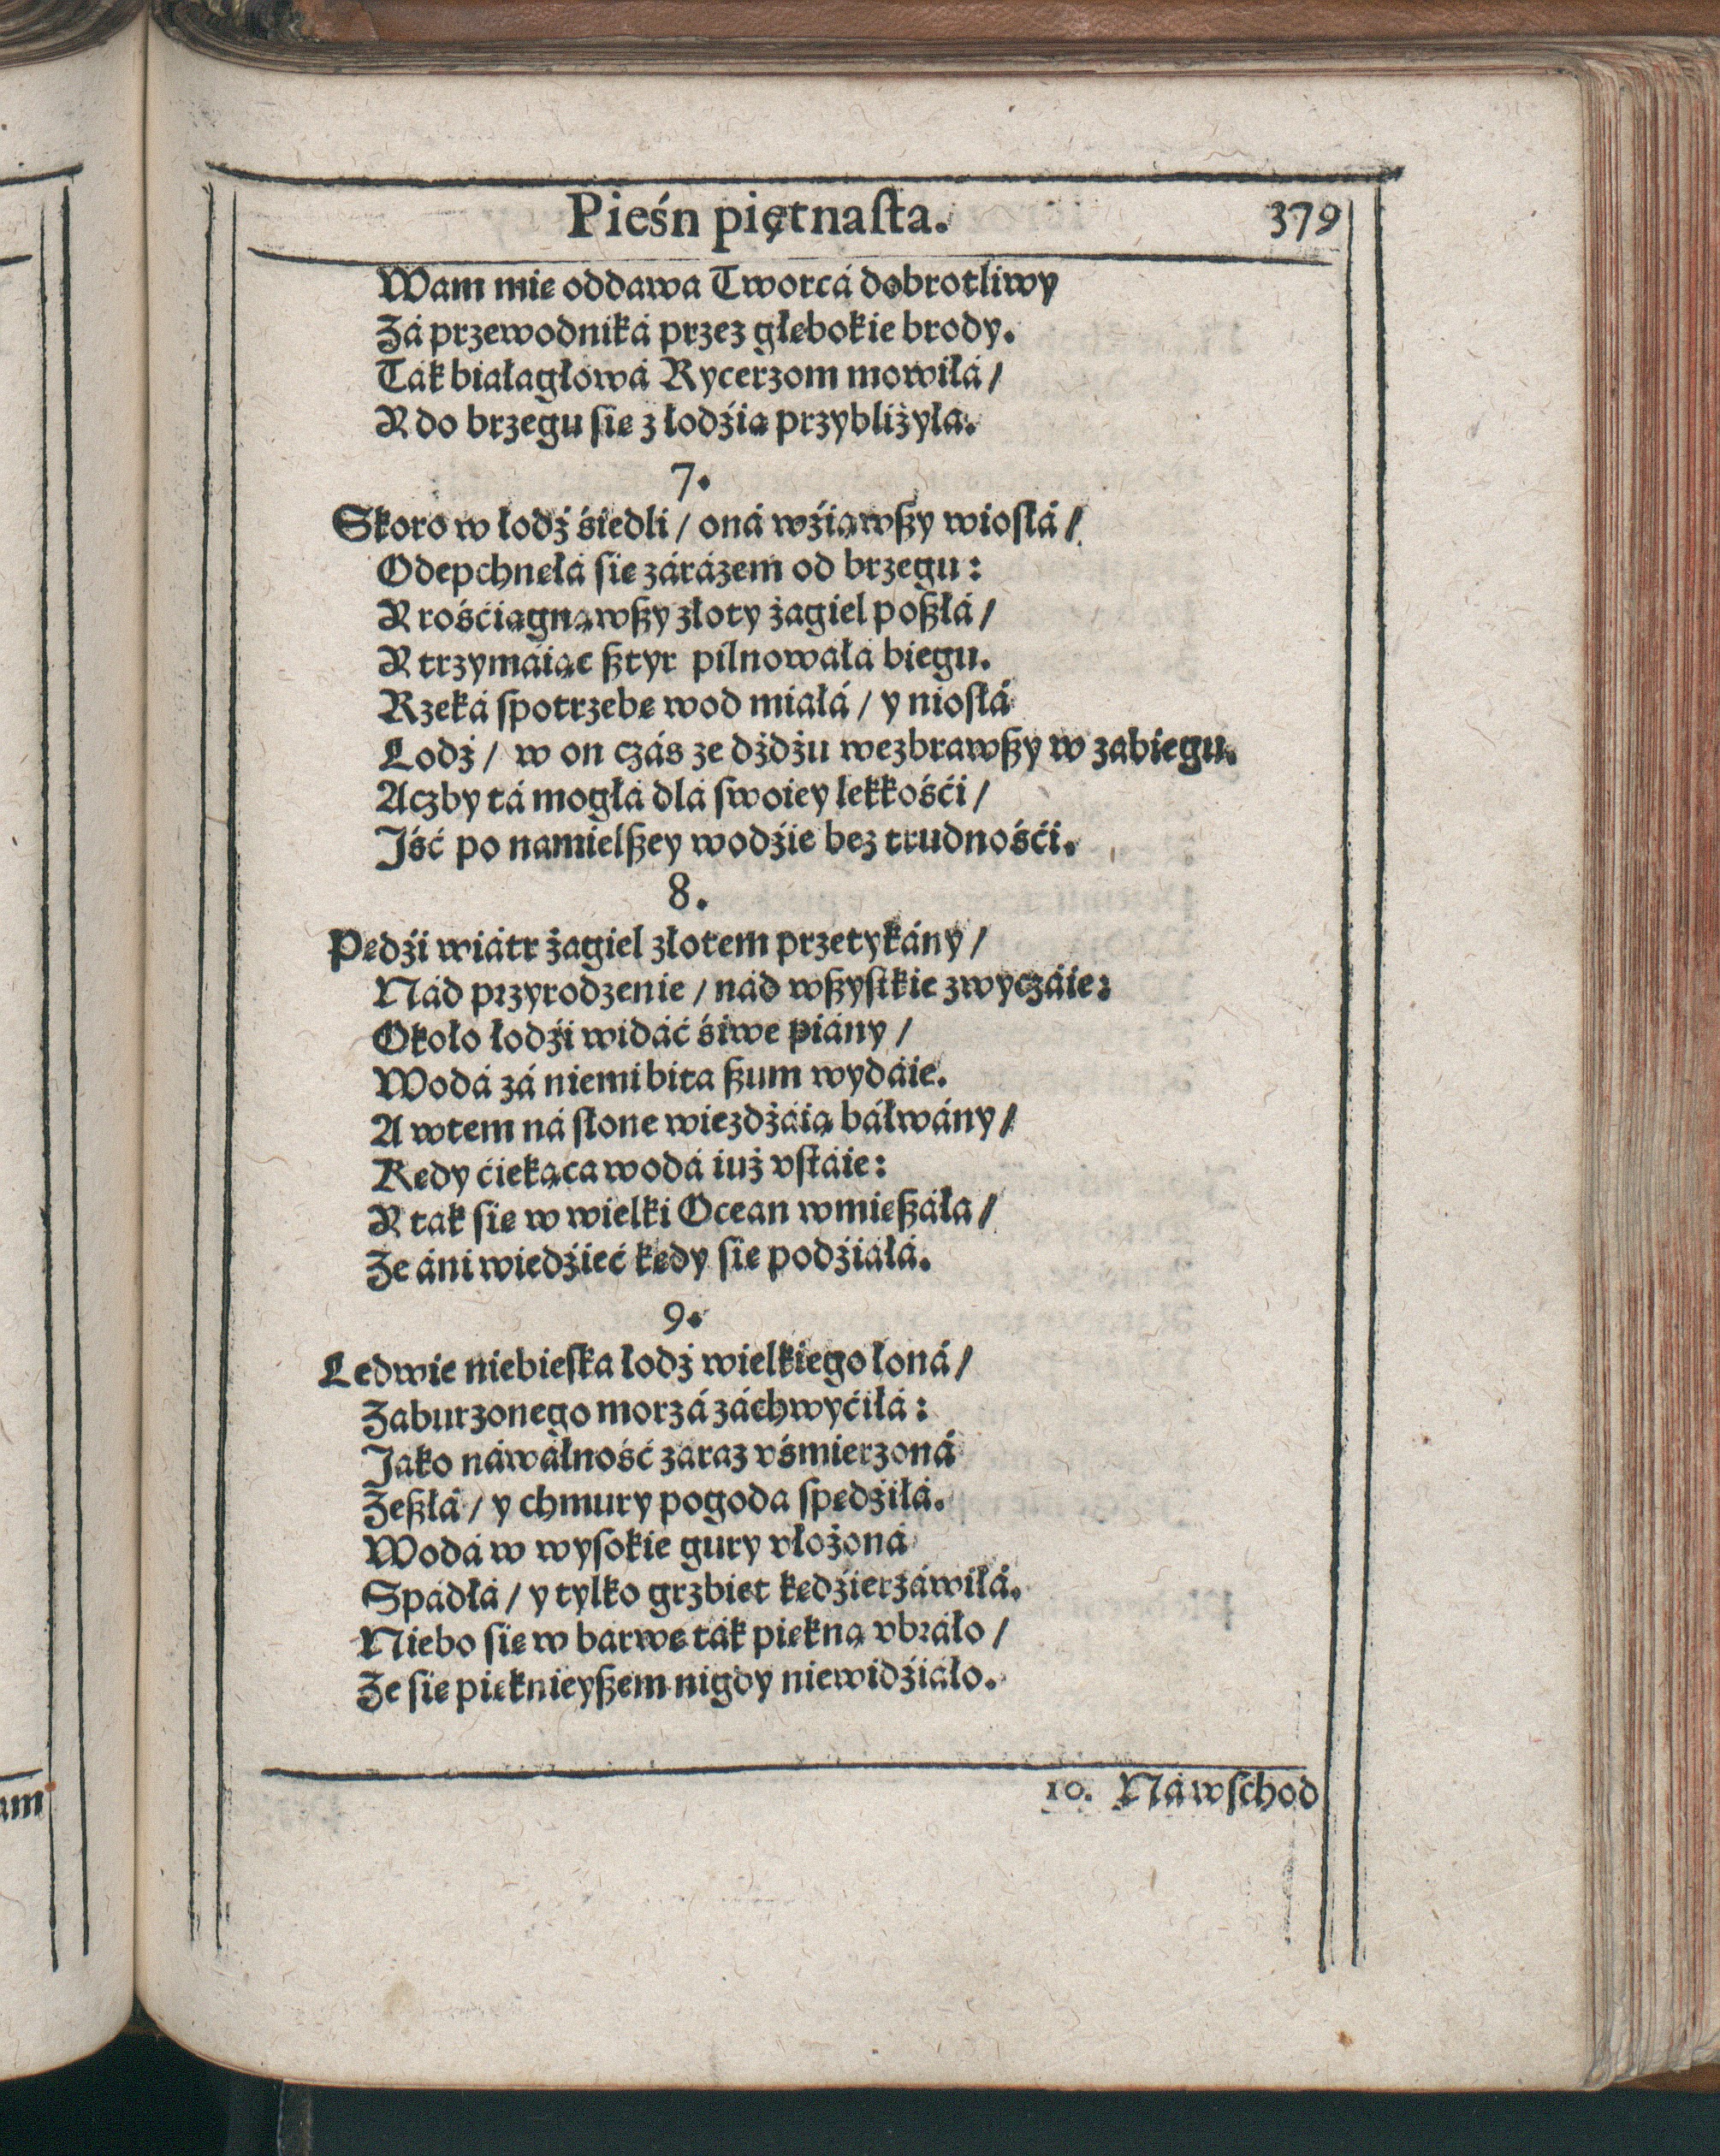 Pieśn piętnaſta. 379
Wam mię oddawa Tworcá dobrotliwy
Zá przewodniká przez głębokie brody.
Ták białagłowá Rycerzom mowiłá /
Y do brzegu ſię z łodźią przybliżyła.
7.
Skoro w łodź śiedli / oná wźiąwſzy wioſłá /
Odepchnęłá ſię zárázem od brzegu:
Y rośćiągnąwſzy złoty żagiel poſzłá /
Y trzymáiąc ſztyr pilnowałá biegu.
Rzeká ſpotrzebę wod miáłá / y nioſłá
Lodź / w on czás ze dżdżu wezbrawſzy w zabiegu.
Aczby tá mogłá dlá ſwoiey lekkośći /
Jść po namielſzey wodźie bez trudnośći.
8.
Pędźi wiátr żagiel złotem przetykány /
Nád przyrodzenie / nád wſzyſtkie zwyczáie:
Około łodźi widáć śiwe piány /
Wodá zá niemi bita ſzum wydáie.
A wtem ná ſłone wiezdżáią báłwány /
Kędy ćiekąca wodá iuż vſtáie:
Y tak ſię w wielki Ocean wmieſzáła /
Że áni wiedźieć kędy ſię podźiáłá.
9.
Ledwie niebieſka łodź wielkiego łoná /
Zaburzonego morzá záchwyćiłá:
Jako náwáłność zaraz vśmierzoná
Zeſzłá / y chmury pogoda ſpędźiłá.
Wodá w wyſokie gury vłożoná
Spádłá / y tylko grzbiet kędźierzáwiłá.
Niebo ſię w barwę ták piękną vbráło /
Że ſię pięknieyſzem nigdy niewidźiáło.
10. Náwſchod
am